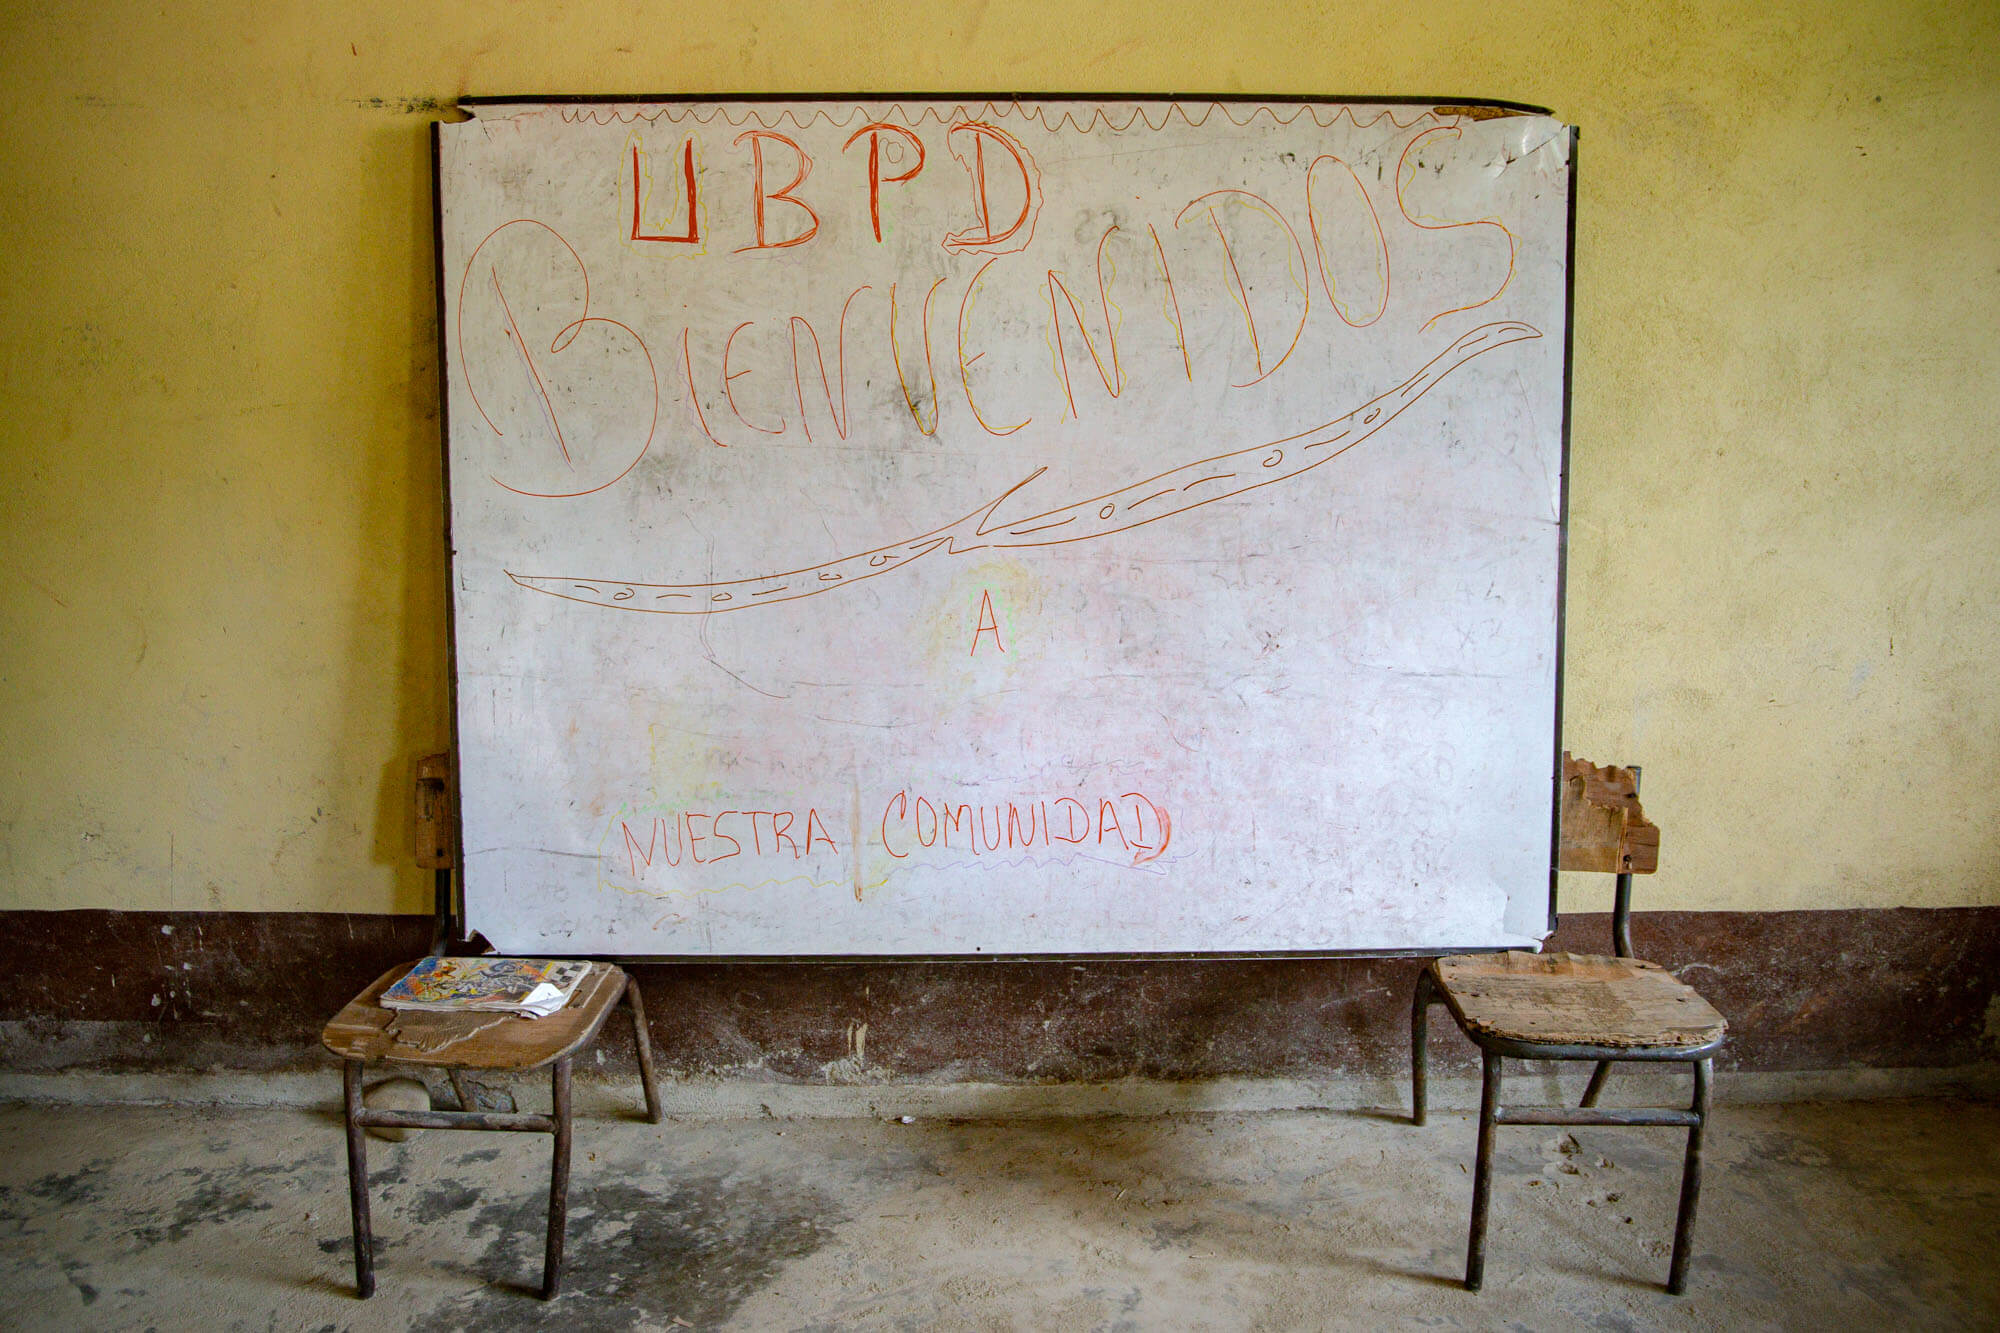 UBPD
BIENVENIDOS
A
NUESTRA COMUNIDAD